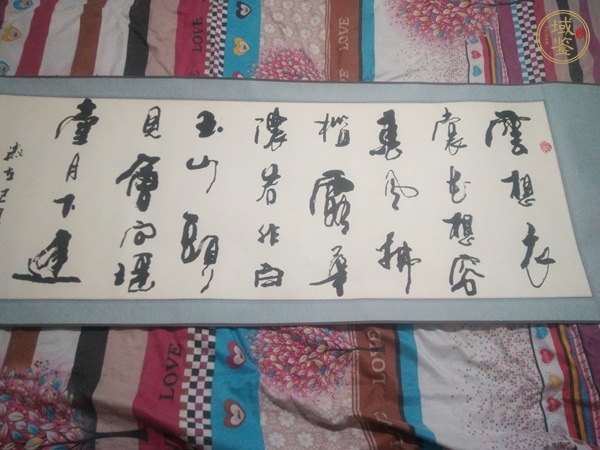 雲想衣
裳花想容
春風拂
檻露華
濃若非
玉山頭
見會向瑤
臺月下逢
域鉴
LOVE
LOVE
LOVE
LOVE